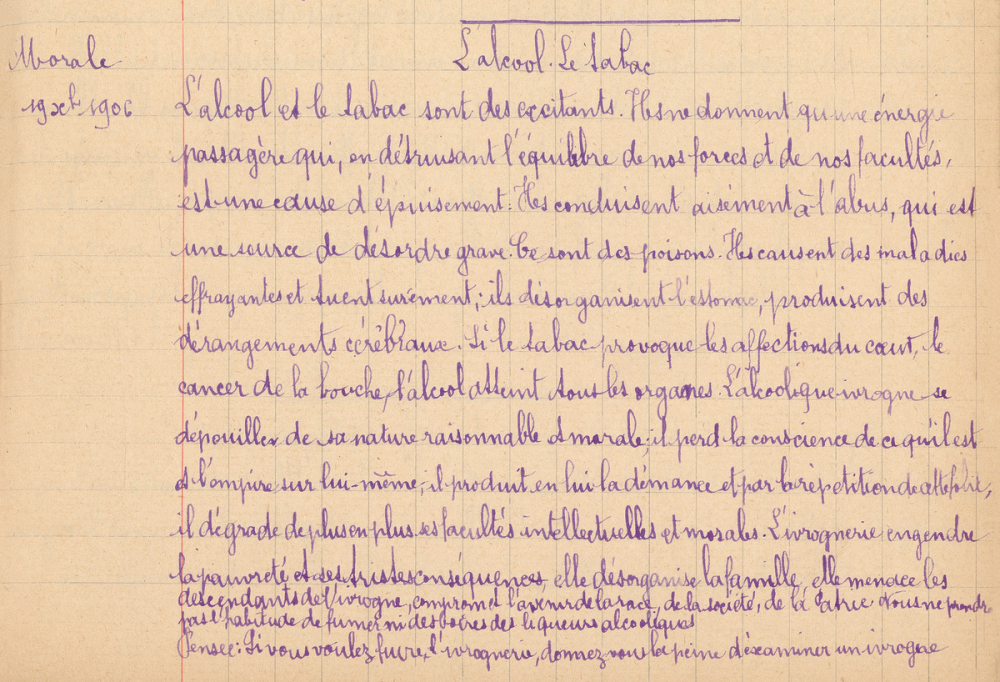 L'alcool. Le tabac
Morale
19 xbre 1906
L'alcool et le tabac sont des excitants. Ils ne donnent qu'une énergie
passagère qui, en détruisant l'équilibre de nos forces et de nos facultés,
est une cause d'épuisement. Ils conduisent aisément à l'abus, qui est
une source de désordre grave. Ce sont des poisons. Ils causent des maladies
effrayantes et tuent surement; ils désorganisent l'estomac, produisent des
dérangements cérébraux. Si le tabac provoque les affections du cœur, le
cancer de la bouche, l'alcool atteint tous les organes. L'alcoolique ivrogne se
dépouiller de sa nature raisonnable et morale; il perd la conscience de ce qu'il est
et l'empire sur lui-même; il produit en lui la démance et par la répétition de cette folie,
il dégrade de plus en plus ses facultés intellectuelles et morales. L'ivrognerie engendre
la pauvreté et ses tristes conséquences, elle désorganise la famille, elle menace les
descendants de l'ivrogne, compromet l'avenir de la race, de la société, de la Patrie
pas l'habitude de fumer ni des boires des liqueurs alcooliques
Pensée: Si vous voulez fuire, l'ivrognerie, donnez-vous la peine d'éxaminer un ivrogne